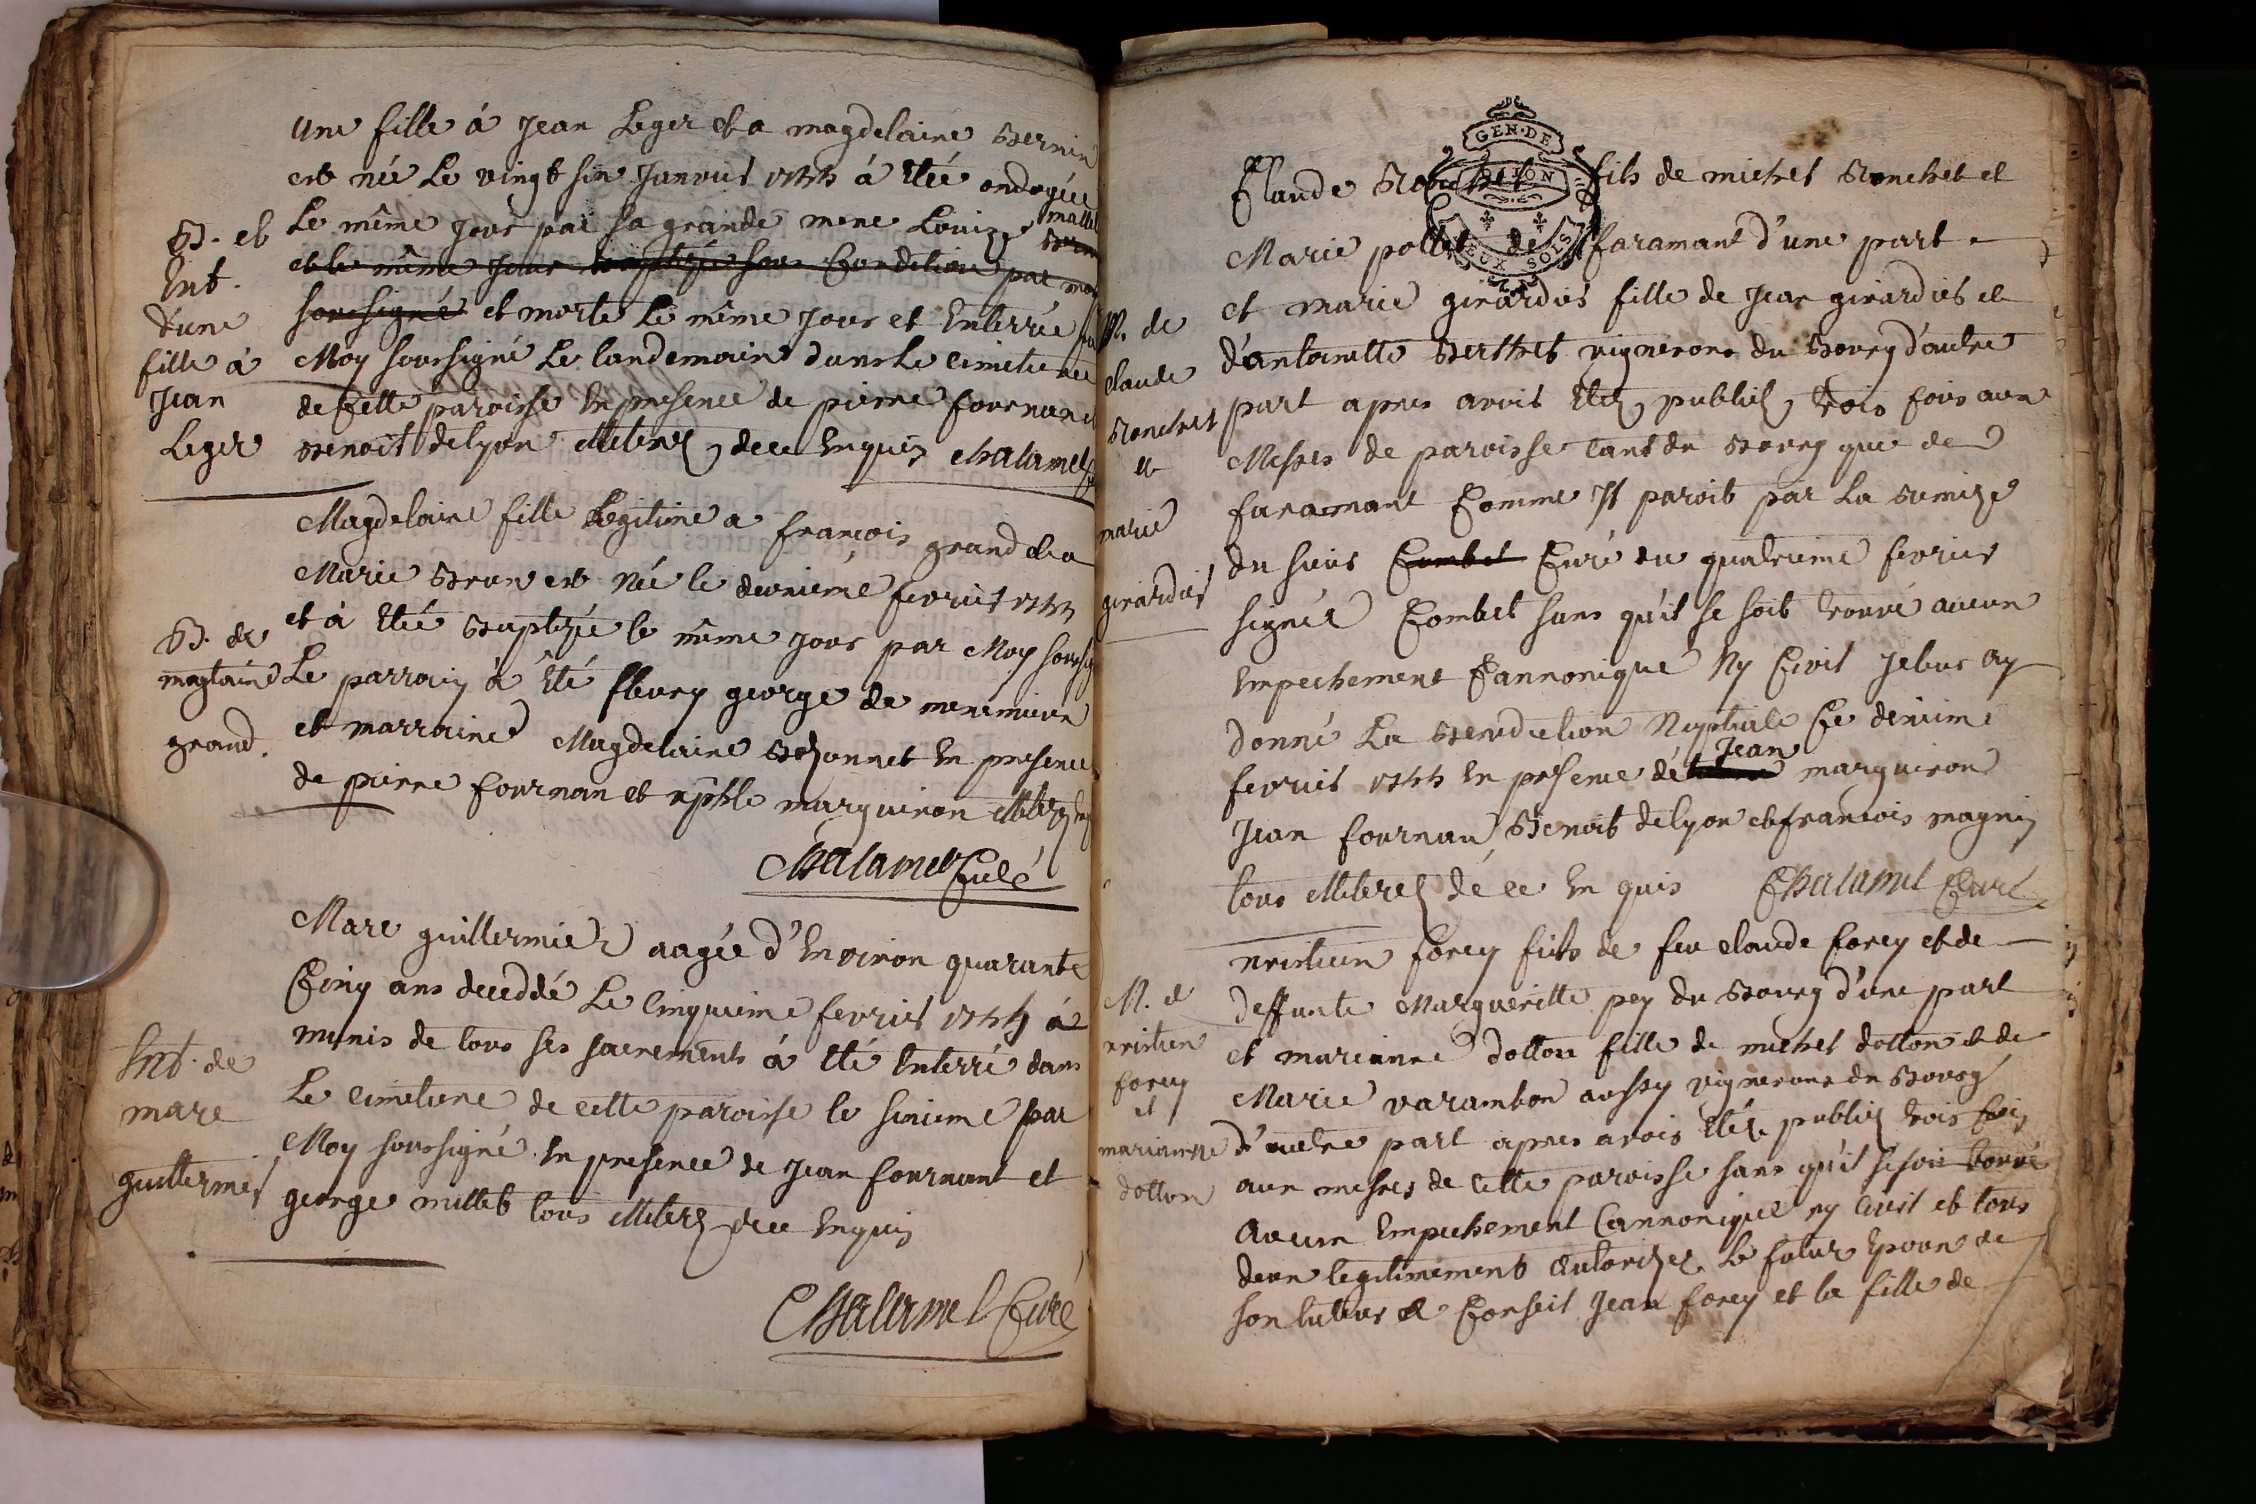 une fille a Jean Leger et a magdelaine Bernin
est née Le vingt six Janvier 1744 a Eteé ondoyée
Le même jour par sa grande mere Louize mallet
et le même jour baptizée sous Condition par moy
soussigné et morte Le même jour et Enterrée par
Moy soussigné Le landemain dans Le cimetiere
de Cette paroisse En presence de pierre fournan et
Benoit delyon Illiterez de ce Enquis Chalamel
B. et
Ent.
d'une
fille à
Jean
Leger
Magdelaine fille Legitime a françois grand et a
Marie Brun est Née le deuxieme fevrier 1744
et à Eteé Baptizée le même jour par Moy soussig
Le parrain à Eté fleury george de meximieux
et marraine Magdelaine Bezonnet En presence
de pierre fournan et marguiron Illiterez
Chalamel Curé
B. de
maglaine
grand.
Marc guillermier aagée d'Environ quarante
Cinq ans deceddé Le Cinquieme fevrier 1744 à
munis de tous ses sacrements à Eté Enterré dans
Le cimetiere de cette paroisse le sixieme par
Moy soussigné En presence de Jean fournant et
george millet tous Illiterez de ce Enquis
Chalamel Curé
Ent. de
marc
guillermier
GEN. DE
DIJON
DEUX SOLS
Claude Ronchet fils de michel Ronchet et
Marie pollet de faramant d'une part
et marie girardier fille de Jean girardier et
d'antoinette Berthet vignerons du Bourg d'autre
part apres avoir Etez publiez trois fois aux
Messes de paroisse tant du Bourg que de
faramant Comme Il paroit par La Remize
du sieur Combet Curé du quatrieme fevrier
signée Combet sans qu'il se soit trouvé aucun
Empechement Cannonique Ny Civil Je leur ay
donné La Benediction Nuptiale Ce dixieme
fevrier 1744 En presence de Jean marguiron
Jean fournan, Benoit delyon et francois magnin
tous Illiterez de ce En quis Chalamel Curé
M. de
claude
Ronchet
et
marie
girardier
Xristien forey fils de feu claude forey et de
deffunte Margueritte pey du Bourg d'une part
et marianne dotton fille de michel dotton et de
Marie varambon aussy vignerons du Bourg
d'autre part apres avoir Etéz publiez trois fois
aux messes de cette paroisse sans qu'il se soit trouvé
aucun Empechement Cannonique ny Civil et tous
deux legitimement authorizez Le futur Epoux de
son tuteur et Conseil Jean forey et la fille de
M. de
xristien
forey
et
marianne
dotton